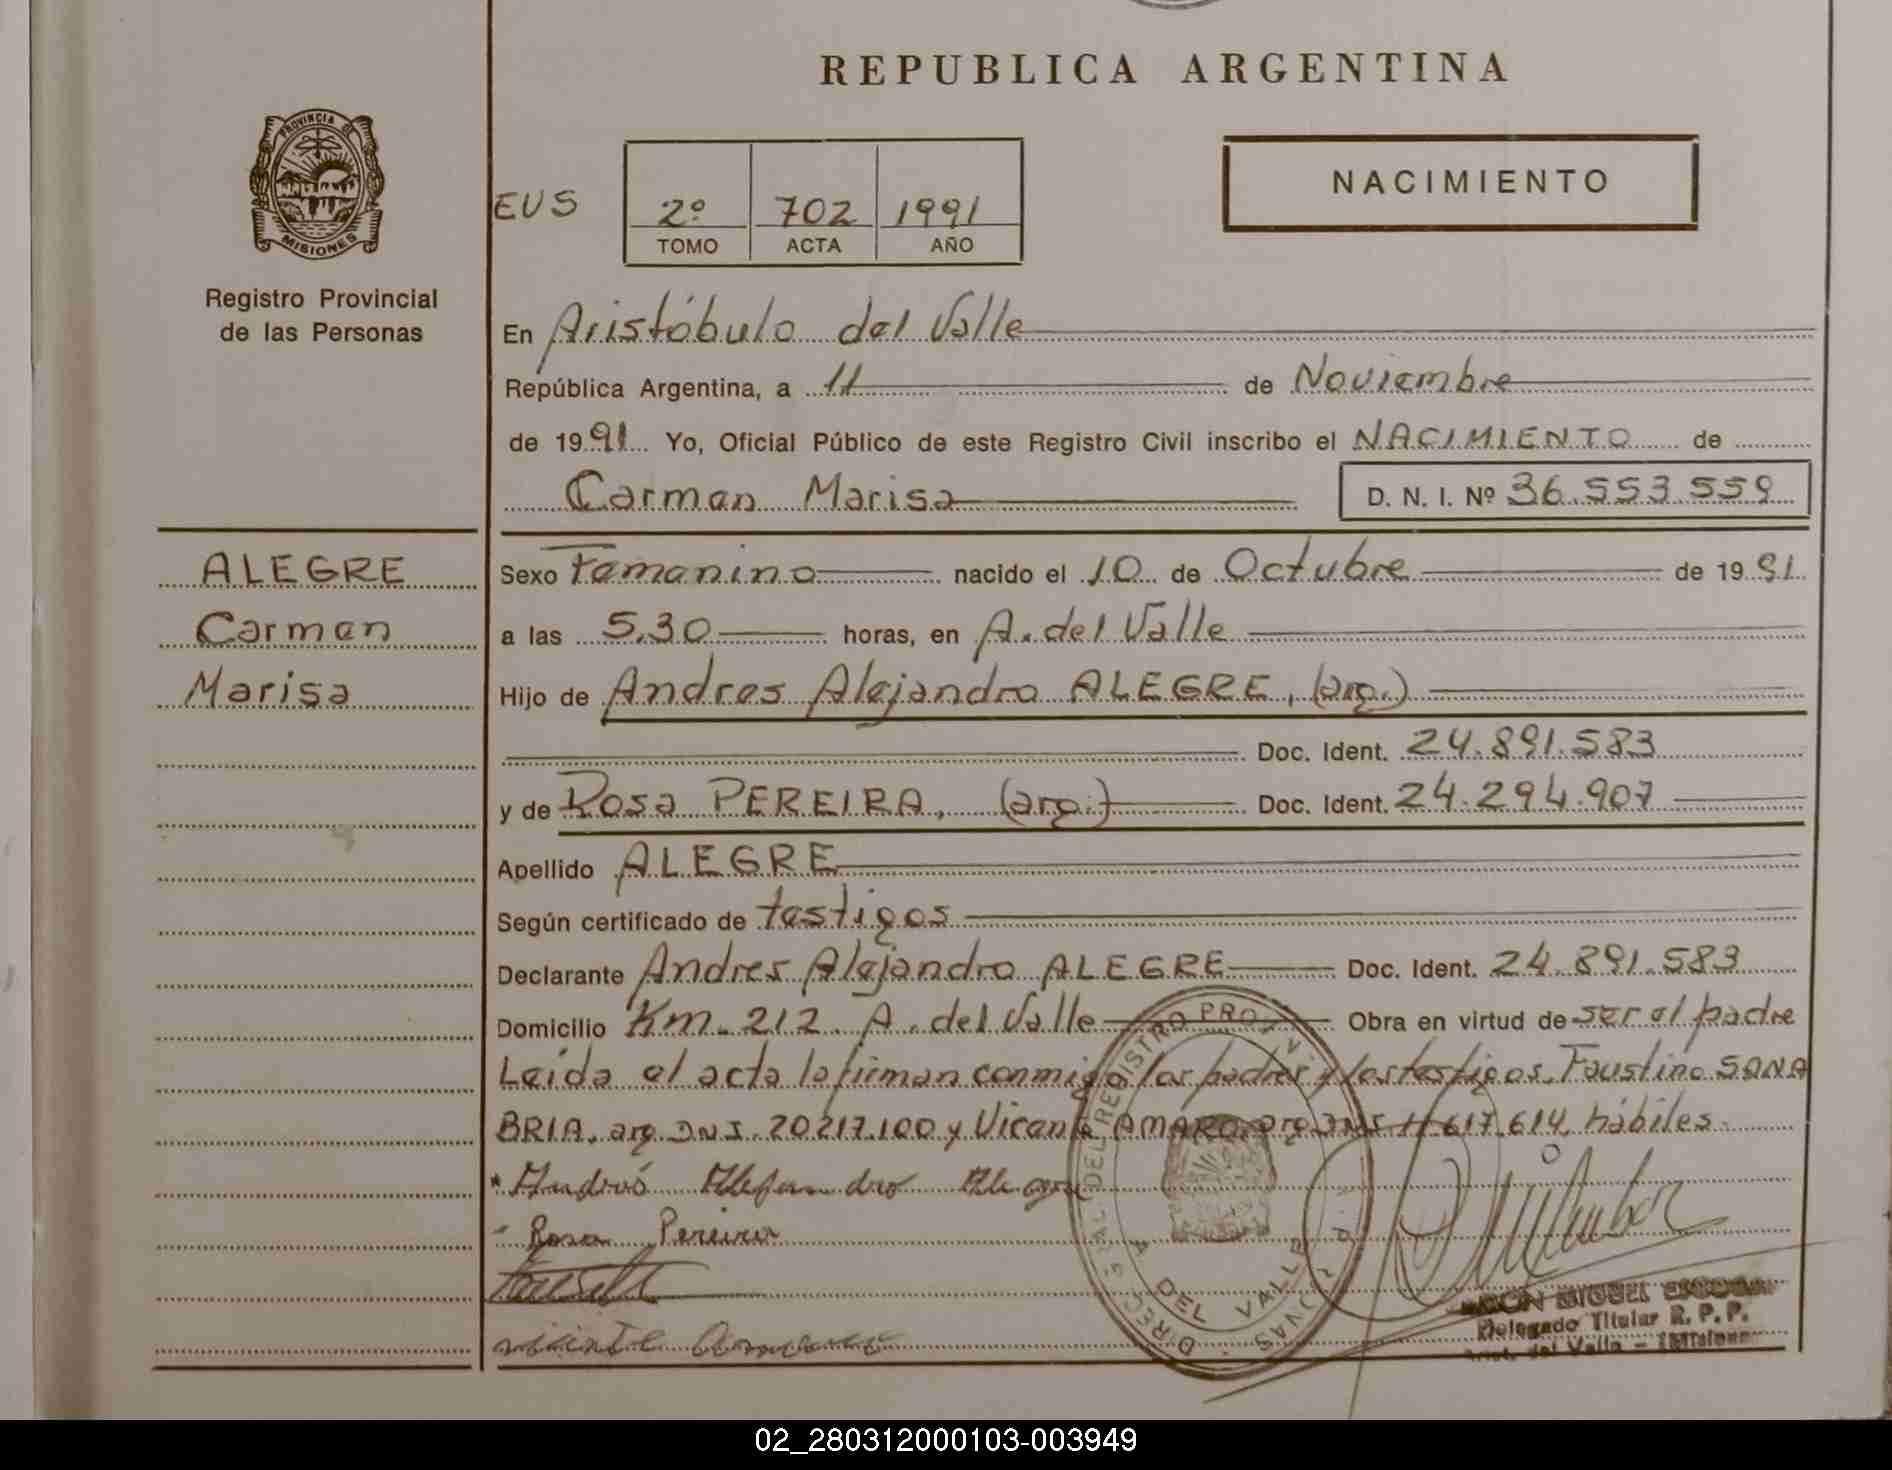 REPUBLICA ARGENTINA
PROVINCIA DE
MISIONES
Registro Provincial
de las Personas
EUS
2º 702 1991
TOMO ACTA AÑO
NACIMIENTO
En Aristóbulo del Valle
República Argentina, a 11 de Noviembre
de 1991 Yo, Oficial Público de este Registro Civil inscribo el NACIMIENTO de
Carmen Marisa D. N. I. Nº 36.553.559
ALEGRE
Carmen
Marisa
Sexo Femenino nacido el 10 de Octubre de 1991
a las 5.30 horas, en A. del Valle
Hijo de Andres Alejandro ALEGRE, (arg.)
Doc. Ident. 24.891.583
y de Rosa PEREIRA, (arg.) Doc. Ident. 24.294.907
Apellido ALEGRE
Según certificado de testigos
Declarante Andres Alejandro ALEGRE Doc. Ident. 24.891.583
Domicilio Km. 212 A. del Valle Obra en virtud de ser el padre
Leída el acta la firman conmigo los padres y los testigos, Faustino SANA
BRIA, arg. DNI. 20217.100 y Vicente AMARO, arg DNI 11 617.614, hábiles.
Andrés Alejandro Alegre
Rosa Pereira
vicente Amaro
A DEL VALLE
Delegado Titular R. P. P.
Arist. del Valle - (Misiones)
02_280312000103-003949